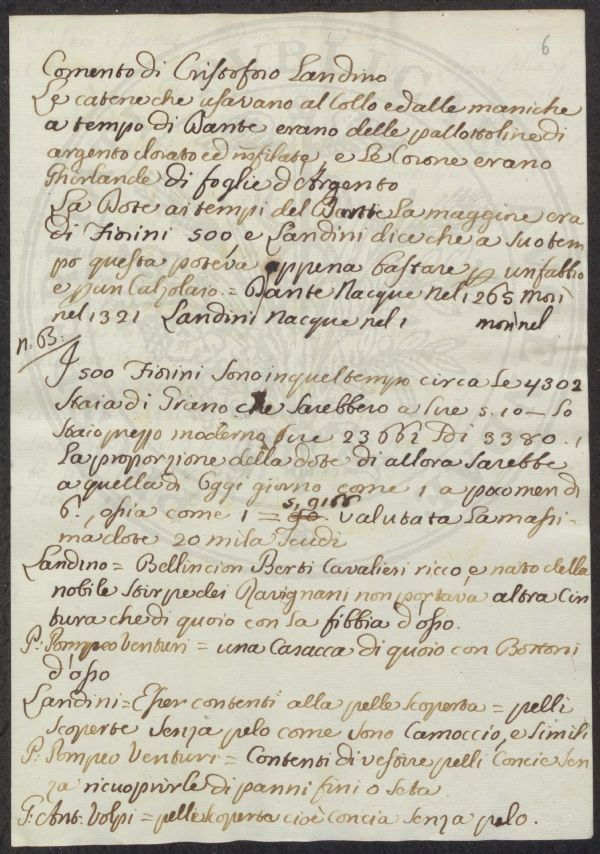 6
Comento di Cristoforo Landino
Le catene che usavano al Collo ed alle maniche
a tempo di Dante erano delle pallottoline di
argento dorato ed infilate, e le Corone erano
Ghirlande di foglie d'Argento
La Dote ai tempi del Dante La maggiore era
di Fiorini 500 e Landini dice che a Suo tem
po questa poteva appena bastare p un fabbro
e p un Calzolaio = Dante Nacque Nel 1265 Morì
nel 1321 Landini Nacque nel 1 morì nel
n. B.
I 500 Fiorini Sono in quel tempo circa Le 4302
Staia di Grano che Sarebbero a Lire 5.10 – Lo
Staio prezzo moderno Lire 23661 3380.
La proporzione della dote di allora Sarebbe
a quella di Oggi giorno come 1 a poco men di
6, ossia come 1 = valutata La massi-
ma dote 20 mila Scudi
Landino = Bellincion Berti Cavalieri ricco, e nato della
nobile Stirpe dei Ravignani non portava altra Cin
tura che di quoio con La fibbia d'osso.
P. Pompeo Venturi = una Casacca di quoio con Bottoni
d'osso
Landini = Esser contenti alla pelle Scoperta = pelli
Scoperte Senza pelo come Sono Camoccio, e Simili
P. Pompeo Venturi = Contenti di vestire pelli Concie Sen
za ricuoprirle di panni fini o Seta.
G. Ant. Volpi = pelle Scoperta cioè Concia Senza pelo.